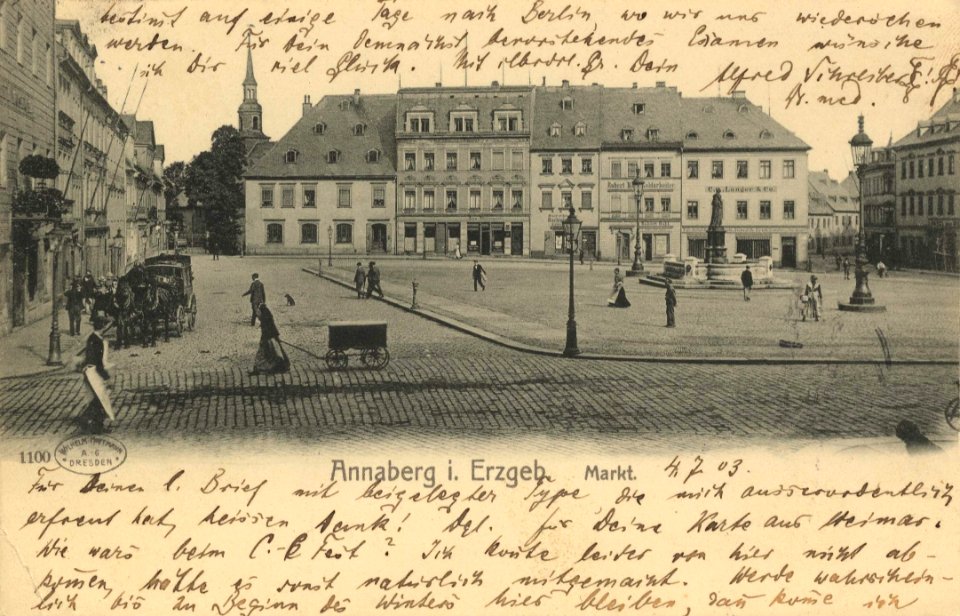 bestimt auf einige Tage nach Berlin, wo wir uns wiedersehen
werden. Für Dein demnächst bevorstehendes Examen wünsche
ich Dir viel Glück. Mit Gr. Dein Alfred Schreiber
Dr. med.
Robert
C. Langer & Co.
1100
WILHELM HOFFMANN
A-G
DRESDEN
Annaberg i. Erzgeb. Markt.
4.7.03.
Für Deinen l. Brief mit beigelegter Type die mich ausserordentlich
erfreut hat, heissen Dank! Dgl. für Deine Karte aus Weimar.
Wie wars beim C.-C Fest? Ich konte leider von hier nicht ab-
komen, hätte es sonst natürlich mitgemacht. Werde wahrschein-
lich bis zu Beginn des Winters hier bleiben, dan kome ich